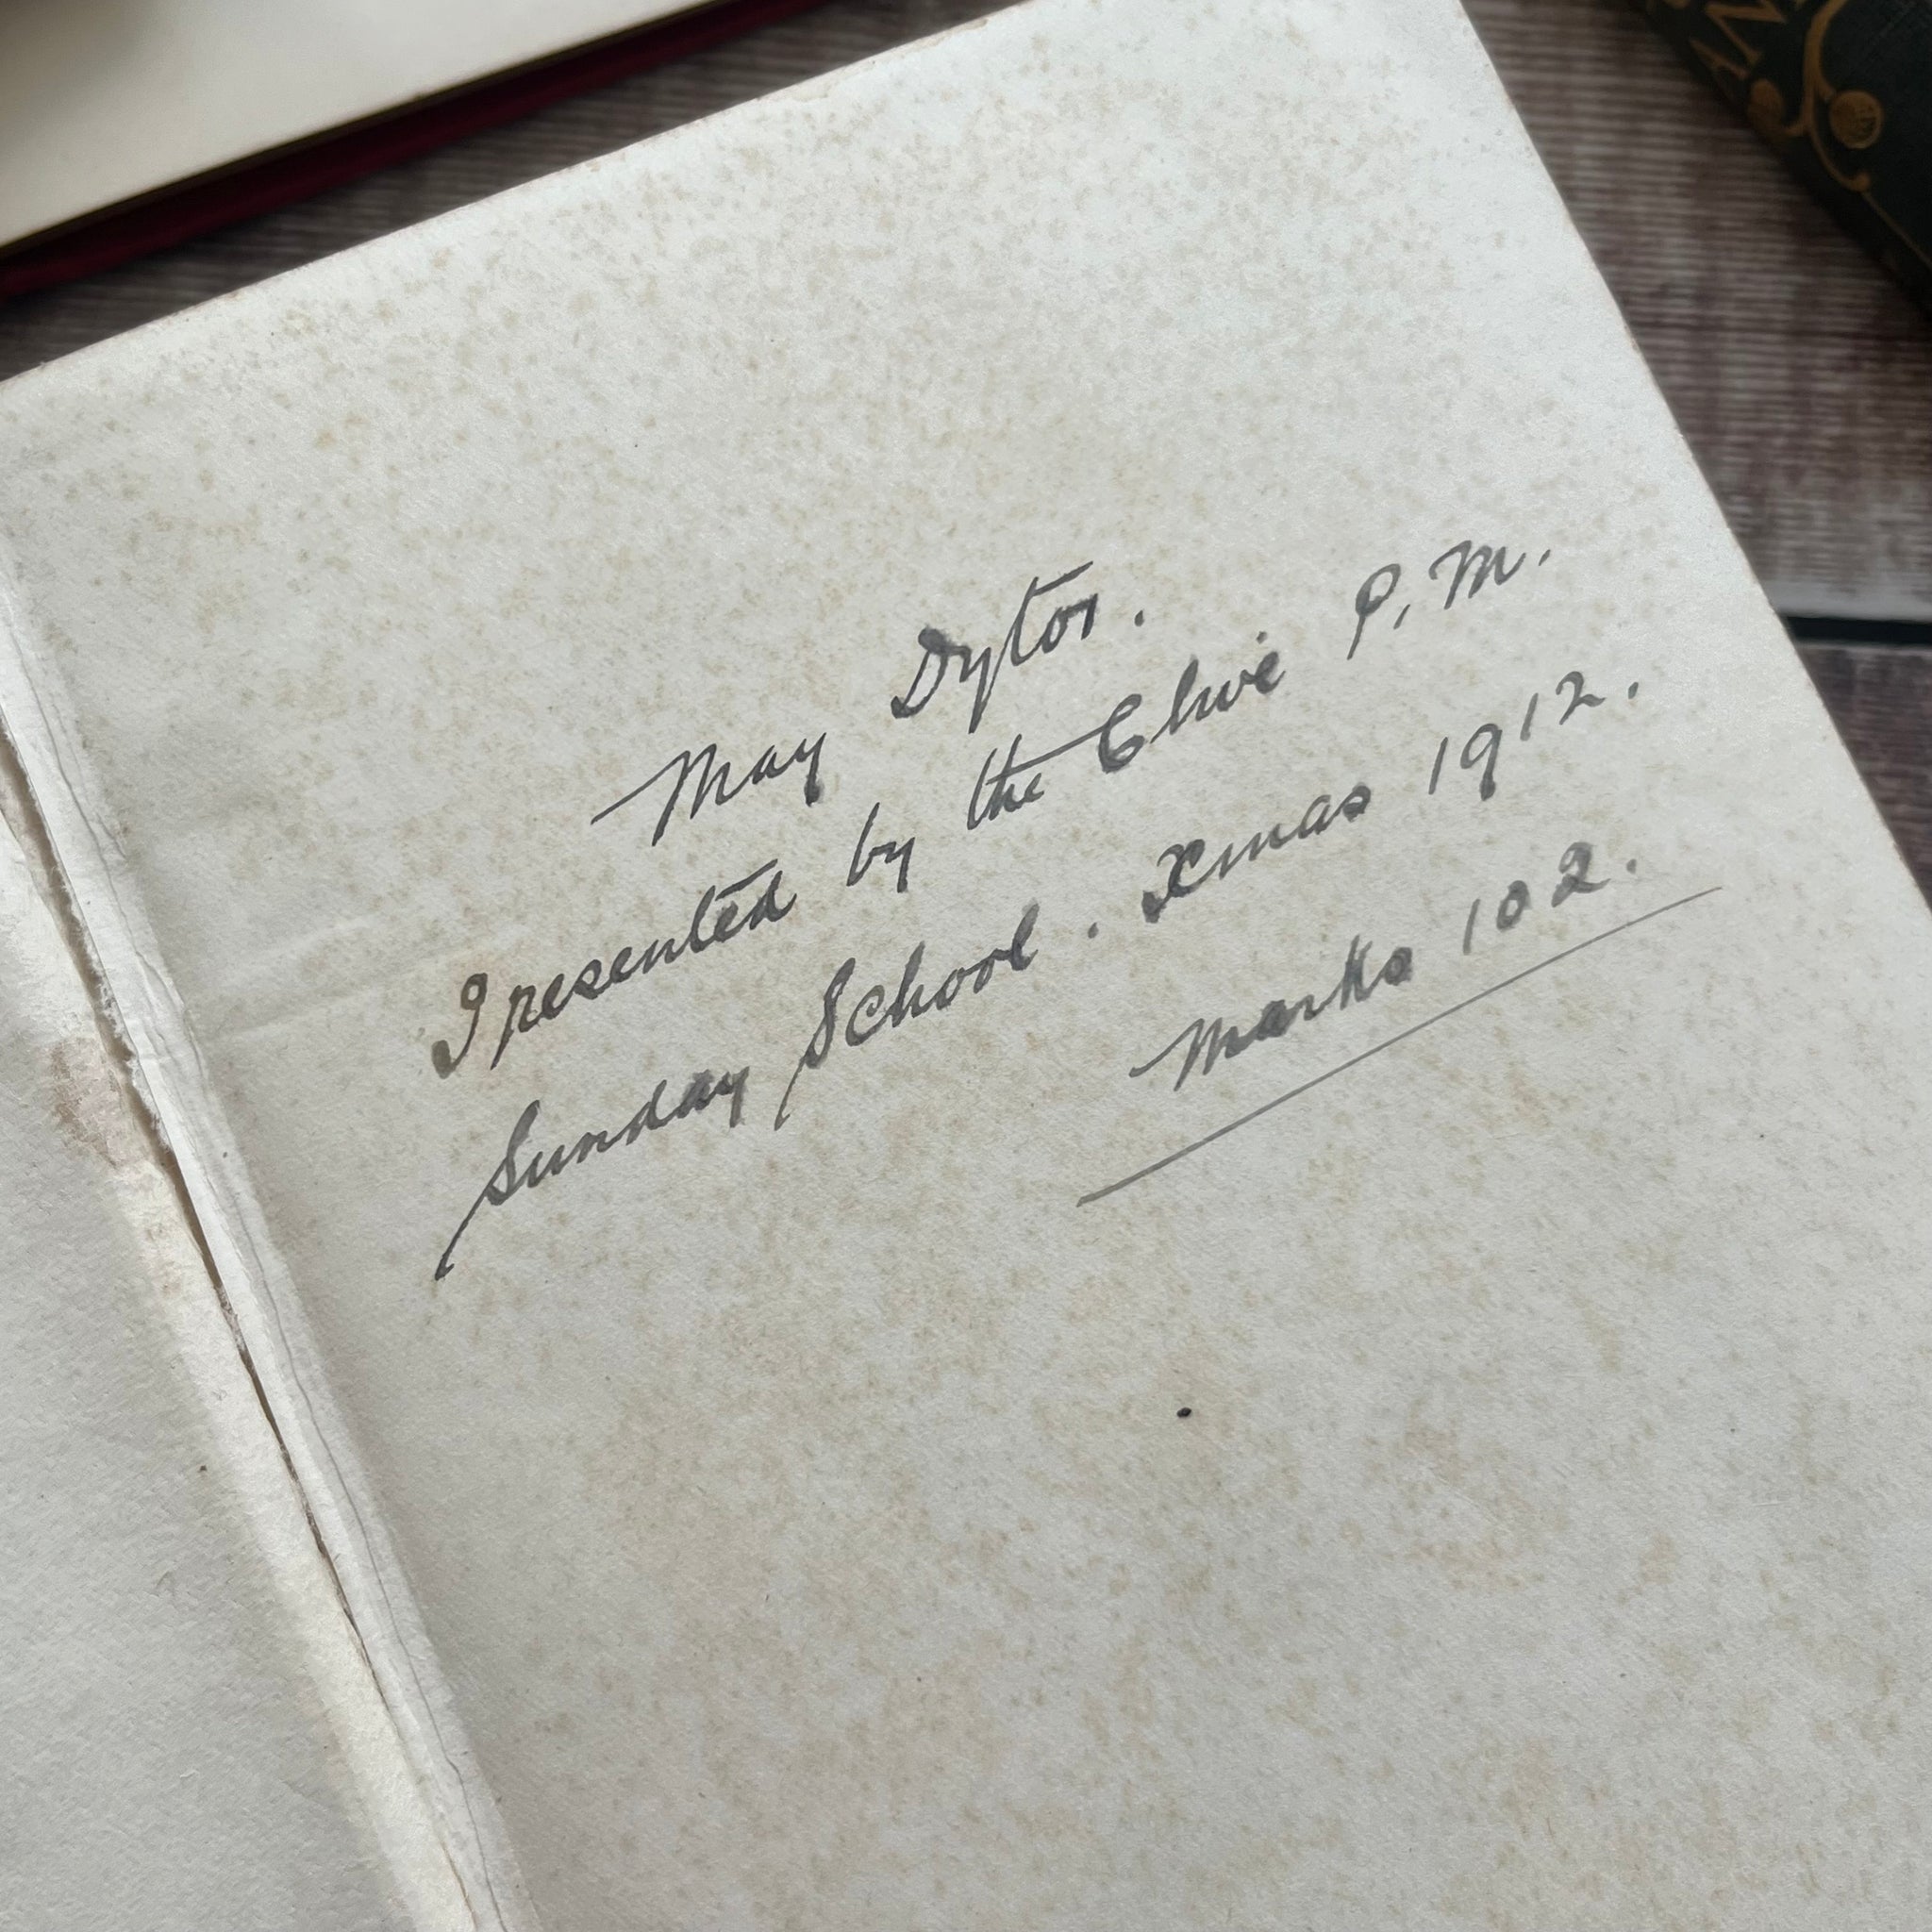 May Dytor.
Presented by the Clive P.M.
Sunday School. Xmas 1912.
Marks 102.